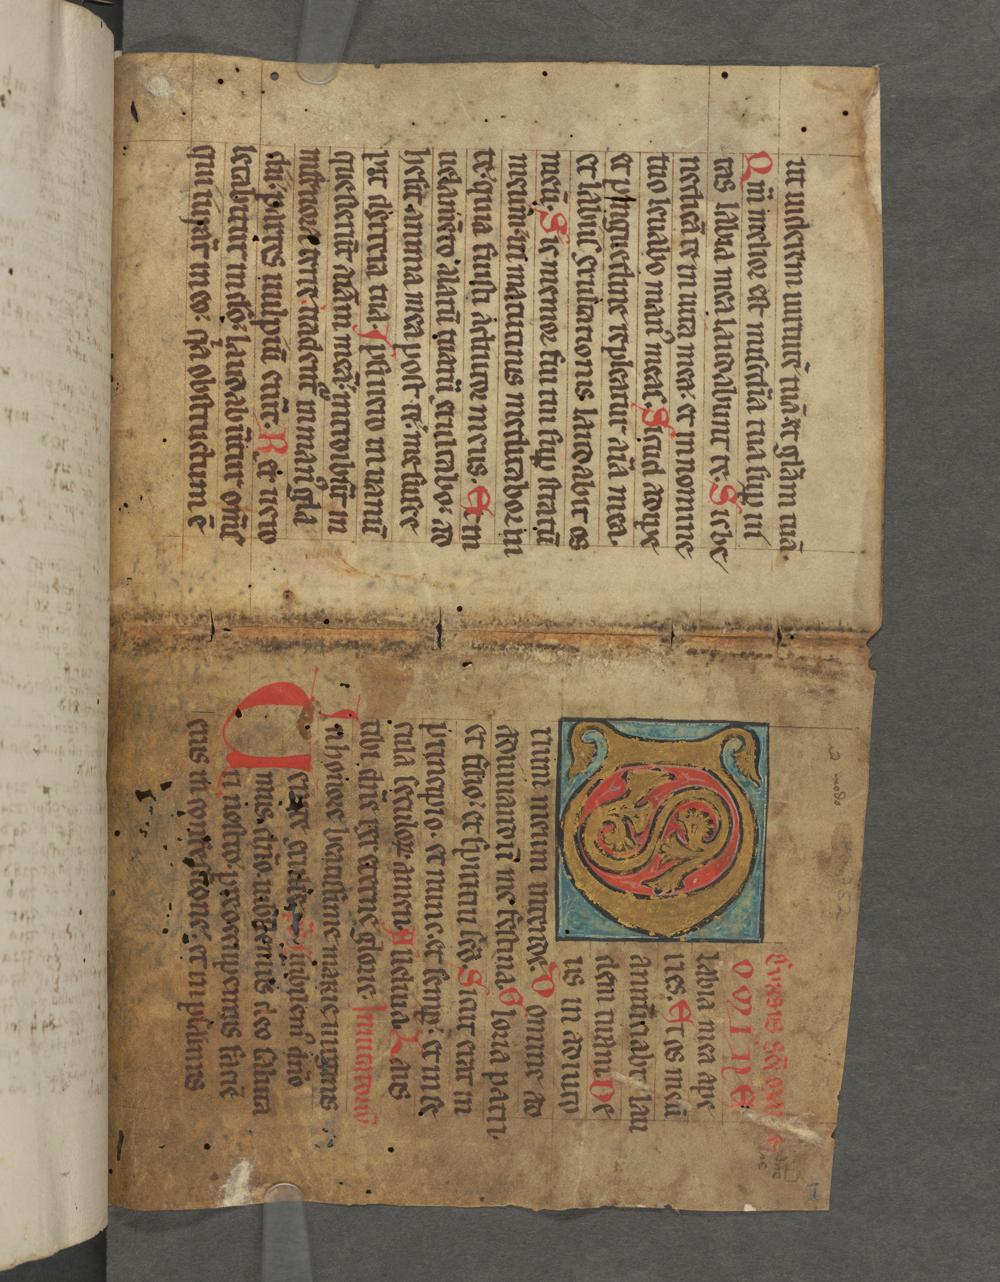 ut uiderem uirtutē tuā ⁊ glām tuā.
Qm̄ melior est miscd̄ia tua sup ui
tas labia mea laudabunt te. Sic be
nedicā te in uita mea. et in nomine
tuo leuabo man⁹ meas. Sicud adype
et pinguedine repleatur aīa mea.
et labiis exultationis laudabit os
meū. Sic memor fui tui sup stratū
meum. in matutinis meditabor in
te. quia fuisti adiutor meus. Et in
uelamēto alarū tuarū exultabo. ad
hesit anima mea post te. me susce
pit dextera tua. Ipsi uero in uanū
quesierūt aīam meā. introibūt in
inferiora terre. tradent̄ in man⁹ gla
dii. partes uulpiū erūt. Rex uero
letabitur in dō. laudabūtur om̄s
qui iurāt in eo. qa obstructum ē
Cursus scē marie
DOMINE
labia mea ape
ries. Et os meū
annūtiabit lau
dem tuam. De
us in adiuto
rium meum intende. Domine ad
adiuuandū me festina. Gloria patri.
et filio. et spiritui scō. Sicut erat in
principio. et nunc. et semp. et in se
cula seculor. amen. Alleluia. Laus
tibi dn̄e rex eterne glorie. Inuitatoriū
In honore beatissime marie uirginis
Uenite exultem⁹ dn̄o
iubilem⁹ deo saluta
ri nostro. preoccupemus faciē
eius in confessione. et in psalmis